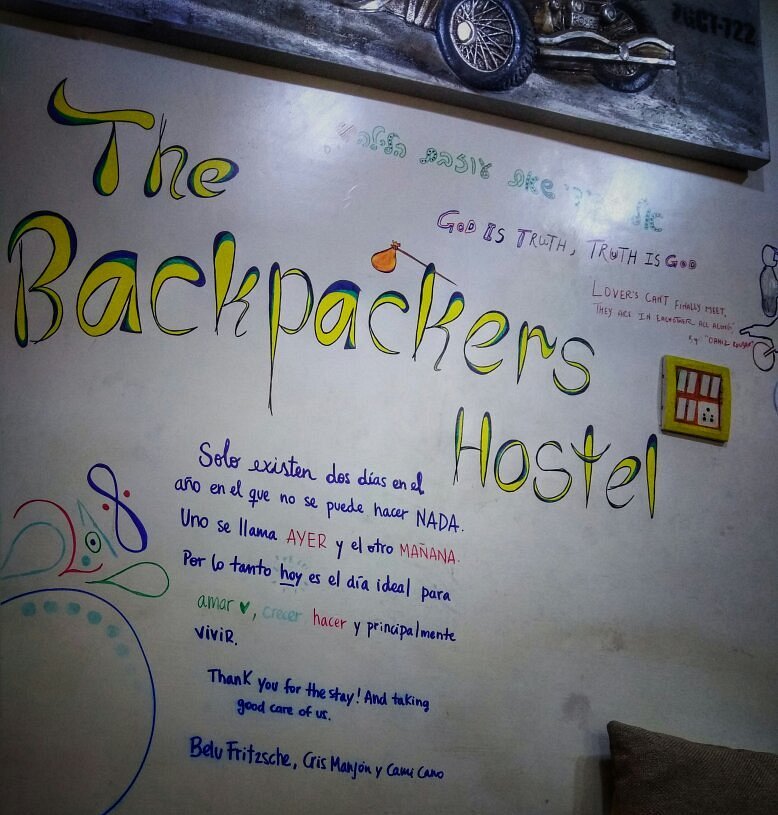 The
Backpackers
Hostel
GOD IS TRUTH, TRUTH IS GOD
LOVER'S CAN'T FINALLY MEET,
THEY ARE IN EACHOTHER ALL ALONG,
Solo existen dos días en el
año en el que no se puede hacer NADA.
Uno se llama AYER y el otro MAÑANA.
Por lo tanto hoy es el día ideal para
amar, crecer hacer y principalmente
viviR.
Thank you for the stay! And taking
good care of us.
Belu Fritzsche, Cris Manjón y Cami Cano